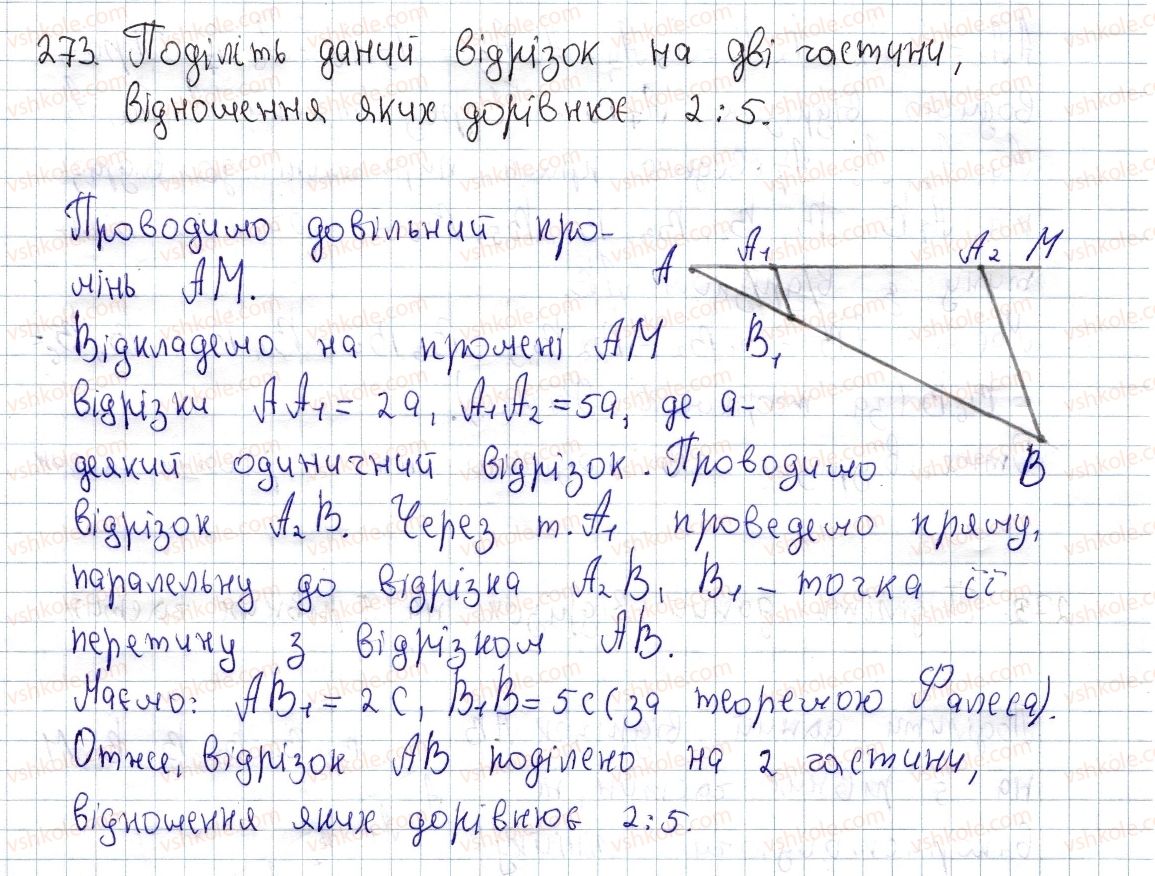 273. Поділіть даний відрізок на дві частини,
відношення яких дорівнює 2 : 5.
Проводимо довільний про-
мінь AM.
Відкладемо на промені AM
відрізки AA₁ = 2a, A₁A₂ = 5a, де a-
деякий одиничний відрізок. Проводимо
відрізок A₂B. Через т. A₁ проведемо пряму,
паралельну до відрізка A₂B, B₁ - точка її
перетину з відрізком AB.
Маємо: AB₁ = 2c, B₁B = 5c (за теоремою Фалеса).
Отже, відрізок AB поділено на 2 частини,
відношення яких дорівнює 2:5.
A A₁ A₂ M
B₁
B
vshkole.com